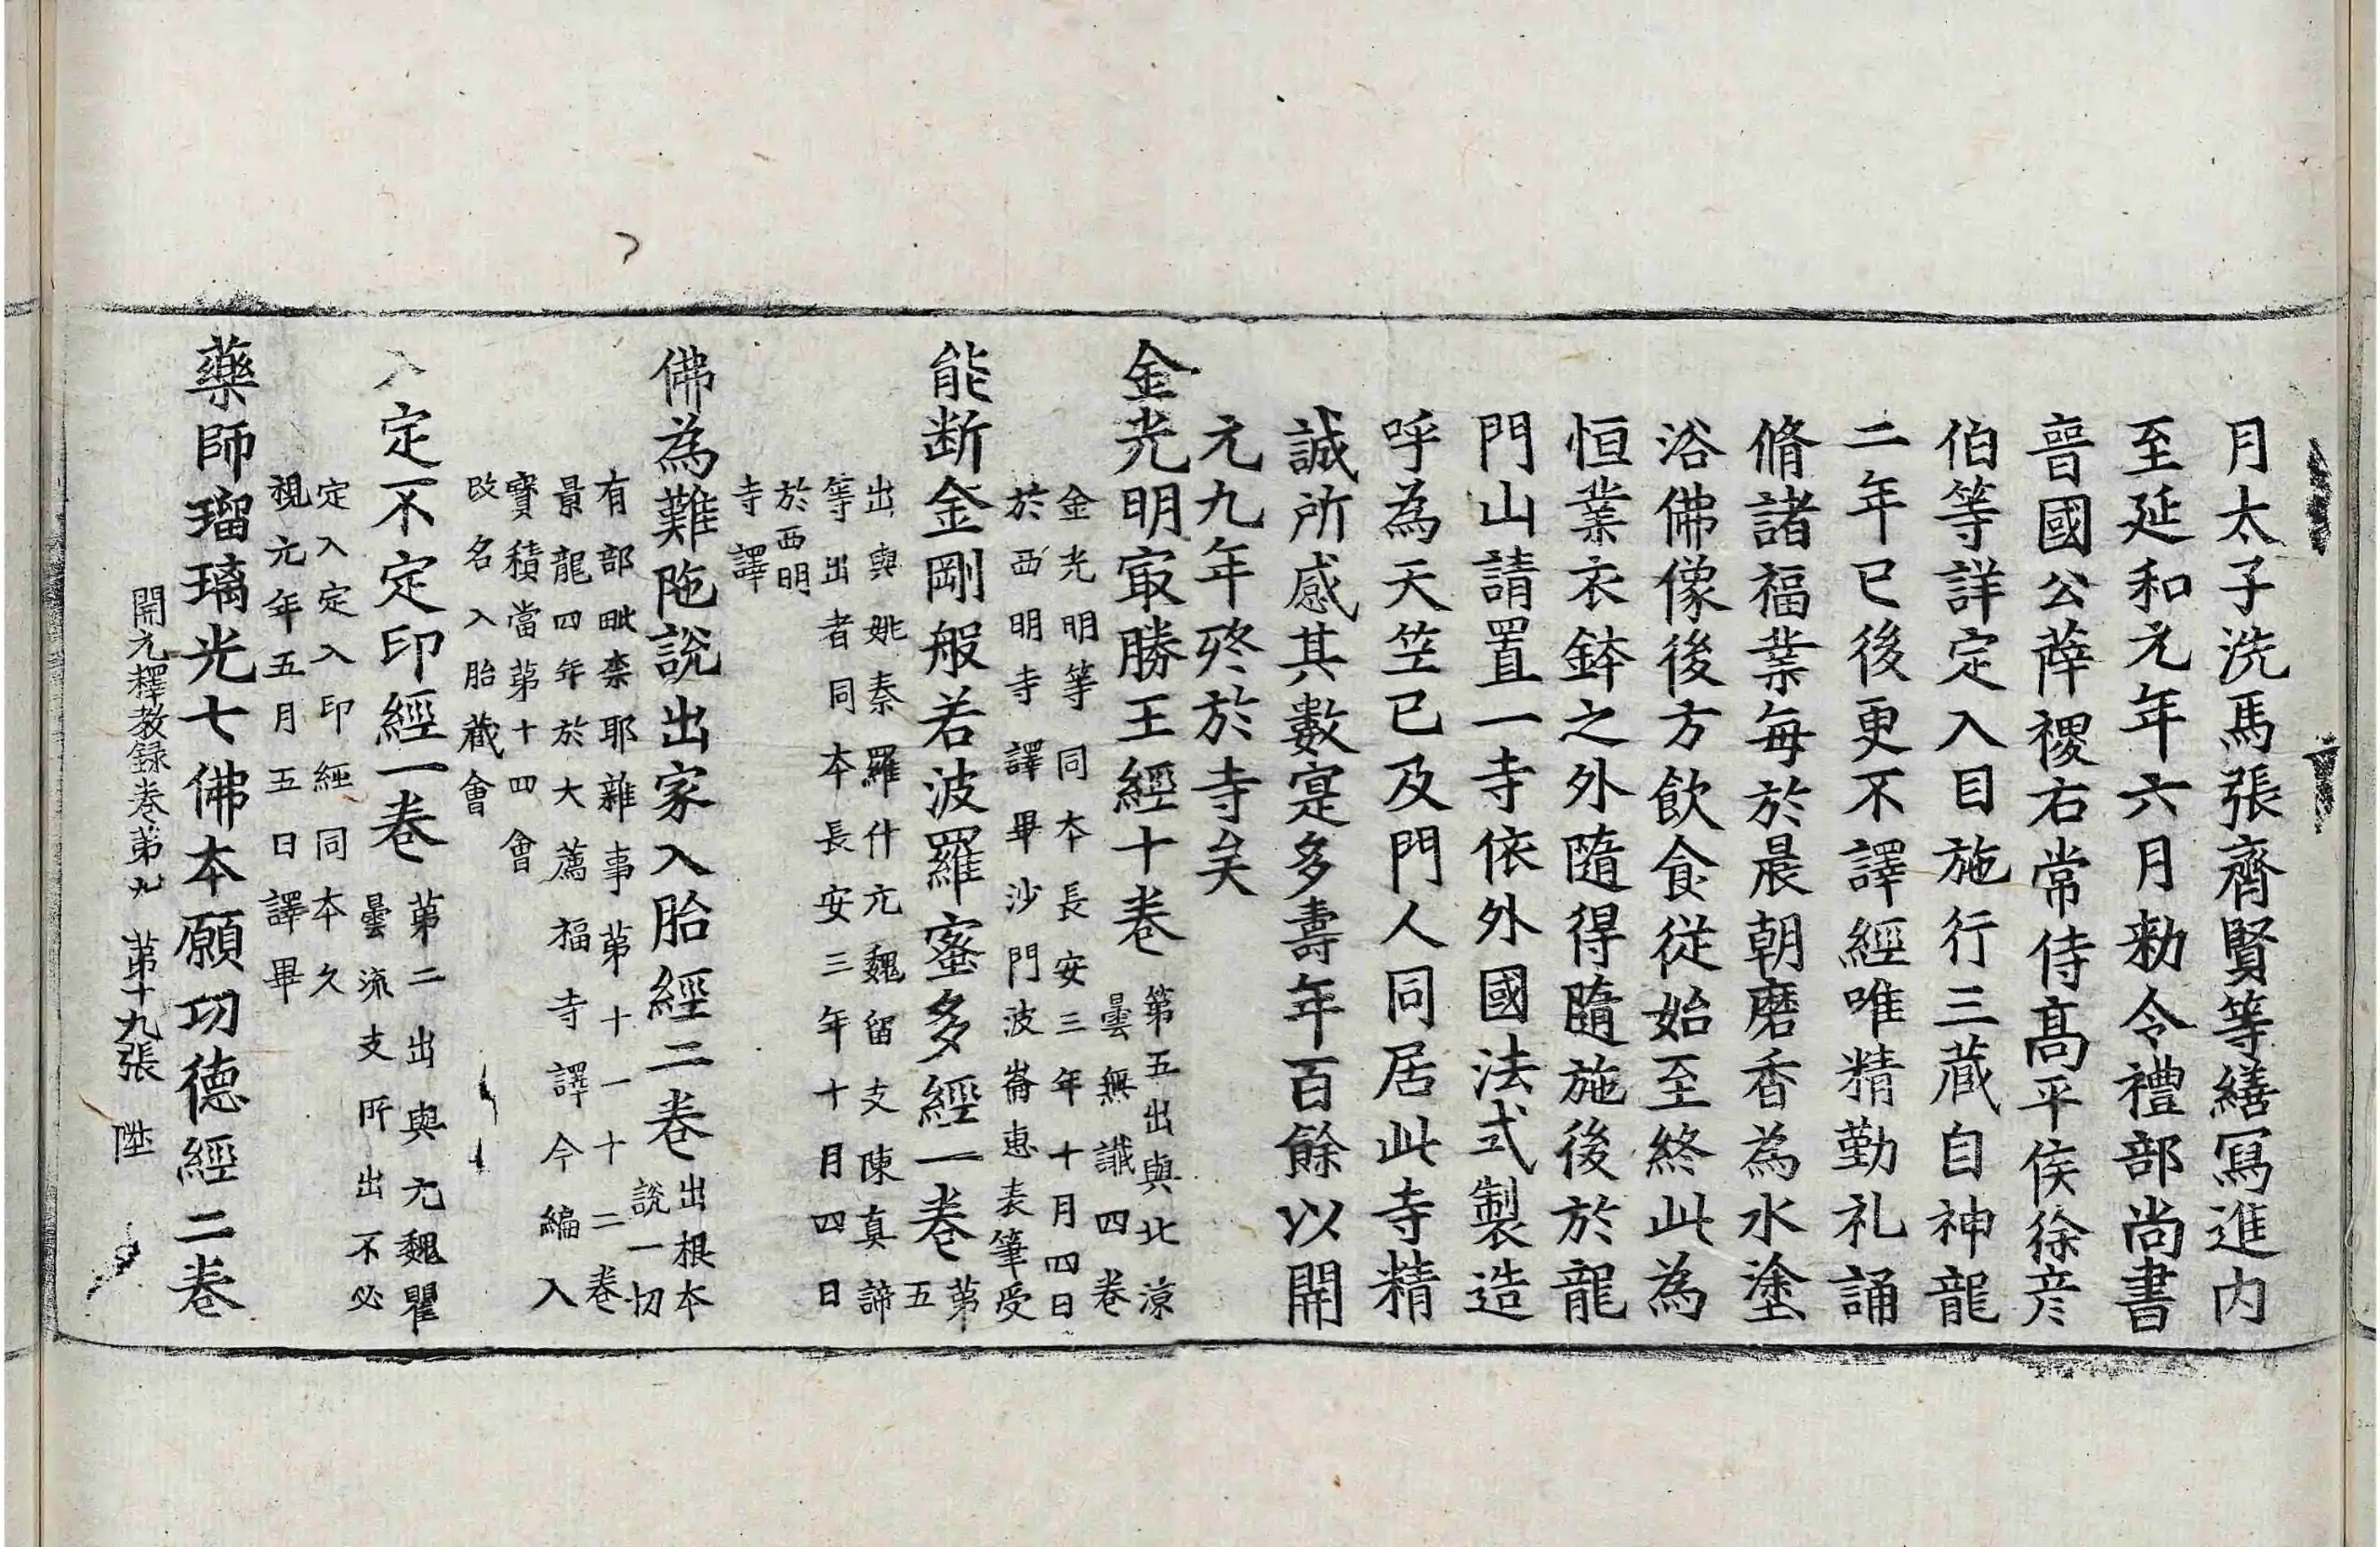 月太子洗馬張齊賢等繕寫進内
至延和元年六月勑令禮部尚書
晉國公薛稷右常侍髙平侯徐彦
伯等詳定入目施行三蔵自神龍
二年已後更不譯經唯精勤礼誦
脩諸福業每於晨朝磨香為水塗
浴佛像後方飲食從始至終此為
恒業衣鉢之外隨得隨施後於龍
門山請置一寺依外國法式製造
呼為天笁已及門人同居此寺精
誠所感其數寔多壽年百餘以開
元九年終於寺矣
金光明㝡勝王經十卷
第五出與北涼
曇無讖四卷
金光明等同本長安三年十月四日
於西明寺譯畢沙門波崙惠表筆受
能断金剛般若波羅蜜多經一卷
第
五
出與姚秦羅什元魏留支陳真諦
等出者同本長安三年十月四日
於西明
寺譯
佛為難陁説出家入胎經二卷
出根本
說一切
有部毗柰耶雜事第十一十二卷
景龍四年於大薦福寺譯今編入
寶積當第十四會
改名入胎蔵會
入定不定印經一卷
第二出與元魏瞿
曇流支所出不必
定入定入印經同本久
視元年五月五日譯畢
藥師瑠璃光七佛本願功德經二卷
開元釋教録卷第九 第十九張 陞